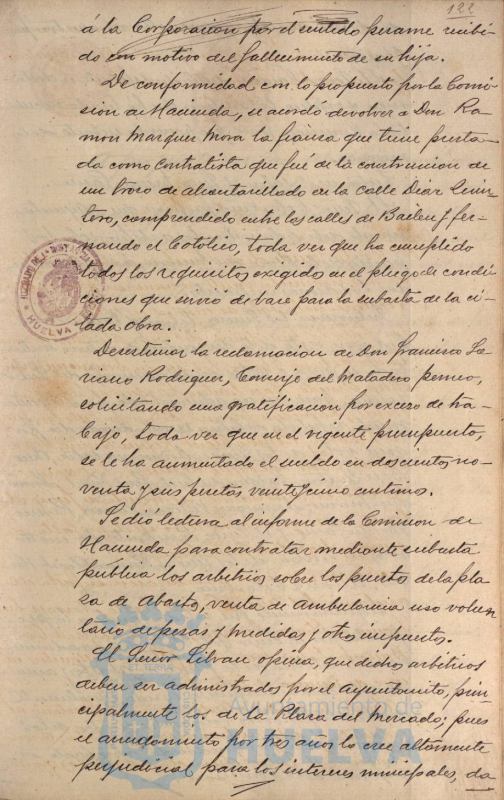 122
á la Corporacion por el sentido pesame recibi-
do con motivo del fallecimiento de su hija.
De conformidad con lo propuesto por la Comi-
sion de Hacienda, se acordó devolver a Don Ra-
mon Marquez Mora la fianza que tiene presta-
da como contratista que fué de la construccion de
un trozo de alcantarillado en la calle Diaz Quin-
tero, comprendido entre las calles de Bailen y Fer-
nando el Catolico, toda vez que ha cumplido
todos los requisitos exigidos en el pliego de condi-
ciones que sirvió de base para la subasta de la ci-
tada obra.
Desestimar la reclamacion de Don Francisco So-
riano Rodriguez, Conserje del Matadero
solicitando una gratificacion por exceso de tra-
bajo, toda vez que en el vigente presupuesto,
se le ha aumentado el sueldo en doscientas no-
venta y seis pesetas veinticinco centimos.
Se dió lectura al informe de la Comision de
Hacienda para contratar mediante subasta
pública los arbitrios sobre los puestos de la pla-
za de Abasto, venta de ambulancia uso volun-
tario de pesas y medidas y otros impuestos.
El Señor Silvan opina, que dichos arbitrios
deben ser administrados por el Ayuntamiento, prin-
cipalmente los de la Plaza del Mercado; pues
el arrendamiento por tres años lo cree altamente
perjudicial para los intereses municipales, da
HUELVA
Ayuntamiento de
HUELVA